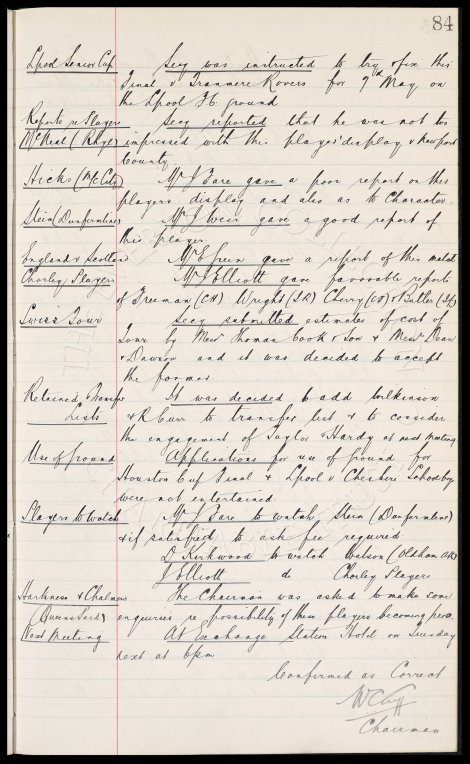 84
Lpool Senior Cup Secy was instructed to try & fix this
Final v Tranmere Rovers for 7th May on
the Lpool FC ground
Reports re Players Secy reported that he was not too
McNeal (Rhyl) impressed with this player's display v Newport
County
Hicks (M/C City) Mr J Fare gave a poor report on this
players display and also as to Character.
Stein (Dunfermline) Mr J Weir gave a good report of
this player
England v Scotland Mr E Green gave a report of this match
Chorley Players Mr J Elliott gave favorable reports
of Freeman (CH) Wright (IR) Cherry (OS) & Butler
Swiss Tour Secy submitted estimates of cost of
Tour by Messrs Thomas Cook & Son & Messrs Dean
& Dawson and it was decided to accept
the former
Retained & Transfer It was decided to add Wilkinson
Lists & R Curr to transfer list & to consider
the engagement of Taylor & Hardy at next meeting
Use of ground Applications for use of ground for
Houston Cup Final & Lpool v Cheshire Schoolboy
were not entertained.
Players to watch Mr J Fare to watch Stein (Dunfermline)
& if satisfied to ask fee required
D Kirkwood to watch Watson (Oldham Ath)
J Elliott do Chorley Players
Harkness & Chalmers The Chairman was asked to make some
(Queens Park) enquiries re possibility of these players becoming pros.
Next Meeting At Exchange Station Hotel on Tuesday
next at 6pm
Confirmed as Correct
W C Cuff
Chairman